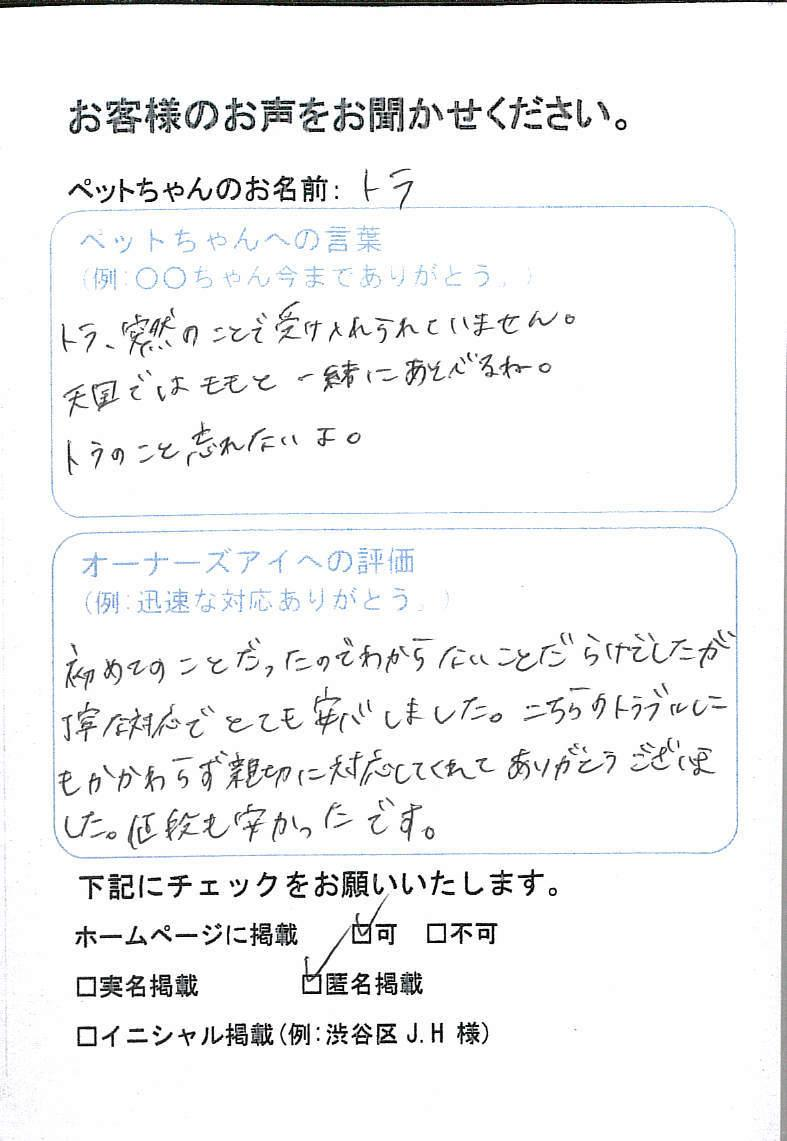 お客様のお声をお聞かせください。
ペットちゃんのお名前: トラ
ペットちゃんへの言葉
(例:〇〇ちゃん今までありがとう。)
トラ、突然のことで受け入れられていません。
天国ではモモと一緒にあそべるね。
トラのこと忘れないよ。
オーナーズアイへの評価
(例:迅速な対応ありがとう。)
初めてのことだったのでわからないことだらけでしたが
丁寧な対応でとても安心しました。こちらのトラブルに
もかかわらず親切に対応してくれてありがとうございま
した。値段も安かったです。
下記にチェックをお願いいたします。
ホームページに掲載 ☑可 □不可
□実名掲載 ☑匿名掲載
□イニシャル掲載(例:渋谷区 J.H 様)